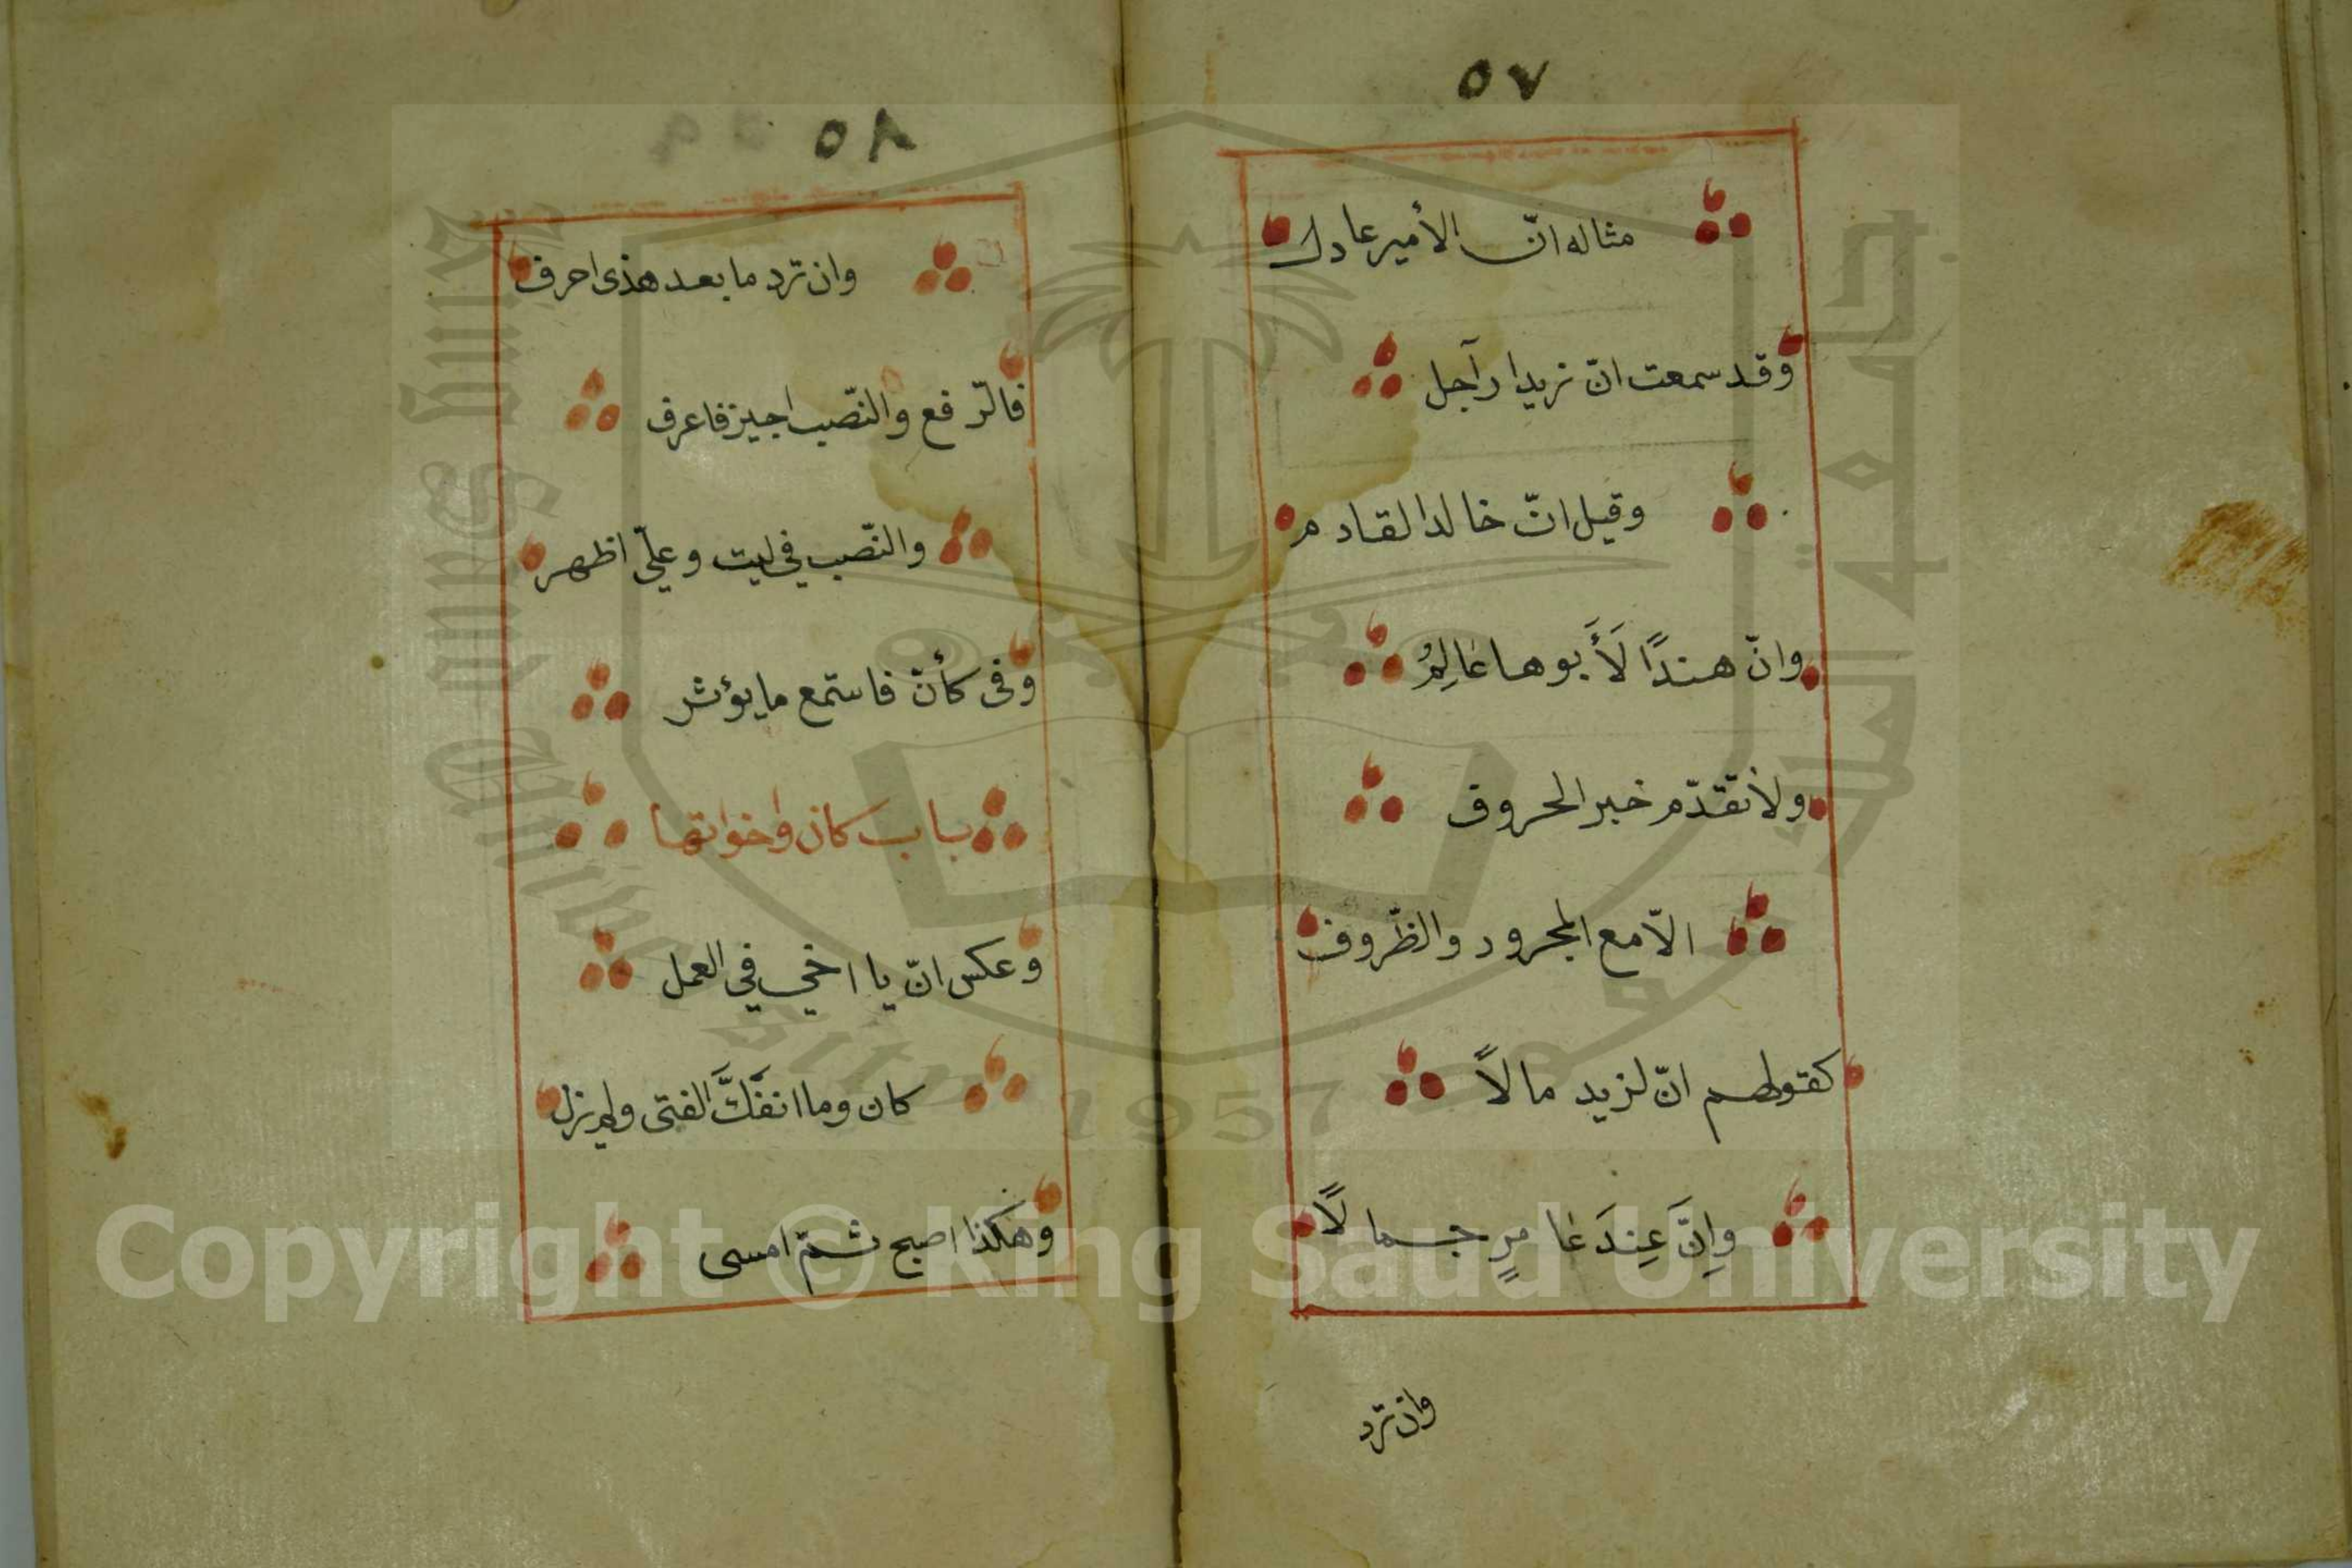 ٥٧
مثاله انّ الأمير عادل
وقد سمعت انّ زيدا رآجل
وقيل انّ خالدا لقادم
وانّ هندًا لَأَبوها عَالِمُ
ولا تقدّم خبر الحروف
الاّ مع المجرور والظّروف
كقولهم انّ لزيد مالاً
وإِنَّ عِندَ عَامرٍ جمالاً
وان ترد
٥٨
وان ترد ما بعد هذى احرف
فالرّفع والنّصب اجيز فاعرف
والنّصب في ليت وعلّ اظهر
وفى كأنّ فاستمع ما يؤثر
باب كان واخواتها
وعكس انّ يا اخي في العمل
كان وما انفَكَّ الفتى ولم يزل
وهَكذا اصبح ثمّ امسى
Copyright © King Saud University
King Saud University
جامعة الملك سعود
1957